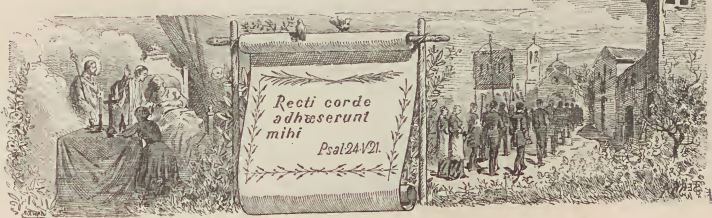 Recti corde
adhæserunt
mihi
Psal·24·V21.